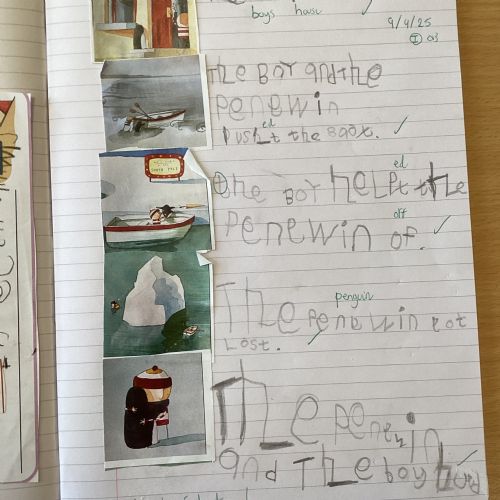 boys house
9/4/25
The Boy and the
penewin
ed
pusht the Boat. ✓
ed
the Boy helpt the
off
penewin of. ✓
penguin
The penewin got
Lost.
The penewin
and The boy hug